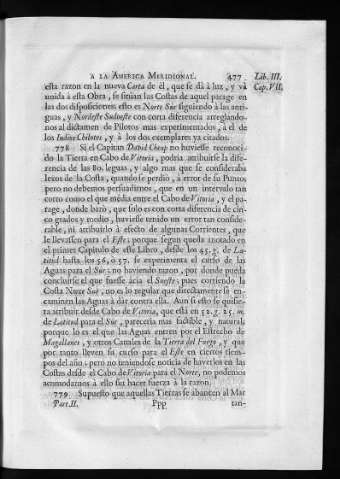 A LA AMERICA MERIDIONAL. 477
Lib. III.
Cap. VII.
esta razon en la nueva Carta de èl, que se dà à luz, y và
unida à esta Obra, se sitùan las Costas de aquel parage en
las dos disposiciones: esto es Norte Sur siguiendo à las anti-
guas, y Nordeste Sudoeste con corta diferencia arreglando-
nos al dictamen de Pilotos mas experimentados, à el de
los Indios Chilotes, y à los dos exemplares ya citados.
778 Si el Capitan David Cheap no huviesse reconoci-
do la Tierra en Cabo de Vitoria, podria atribuirse la dife-
rencia de las 80. leguas, y algo mas que se consideraba
lexos de la Costa, quando se perdiò, à error de su Punto;
pero no debemos persuadirnos, que en un intervalo tan
corto como el que mèdia entre el Cabo de Vitoria, y el pa-
rage, donde barò, que solo es con corta diferencia de cin-
co grados y medio, huviesse tenido un error tan conside-
rable, ni atribuirlo à efecto de algunas Corrientes, que
le llevassen para el Este: porque segun queda anotado en
el primer Capitulo de este Libro, desde los 45. g. de La-
titud hasta los 56, ò 57. se experimenta el curso de las
Aguas para el Sur; no haviendo razon, por donde pueda
concluirse el que fuesse àcia el Sueste; pues corriendo la
Costa Norte Sur, no es lo regular que directamente se en-
caminen las Aguas à dar contra ella. Aun si esto se quisies-
ra atribuir desde Cabo de Vitoria, que està en 52. g. 25. m.
de Latitud para el Sur, pareceria mas factible, y natural,
porque lo es el que las Aguas entren por el Estrecho de
Magallanes, y otros Canales de la Tierra del Fuego, y que
por tanto lleven su curso para el Este en ciertos tiem-
pos del año; pero no teniendose noticia de haverlos en las
Costas desde el Cabo de Vitoria para el Norte, no podemos
acomodarnos à ello sin hacer fuerza à la razon.
779 Supuesto que aquellas Tierras se abanzen al Mar
Part. II. Ppp tan-